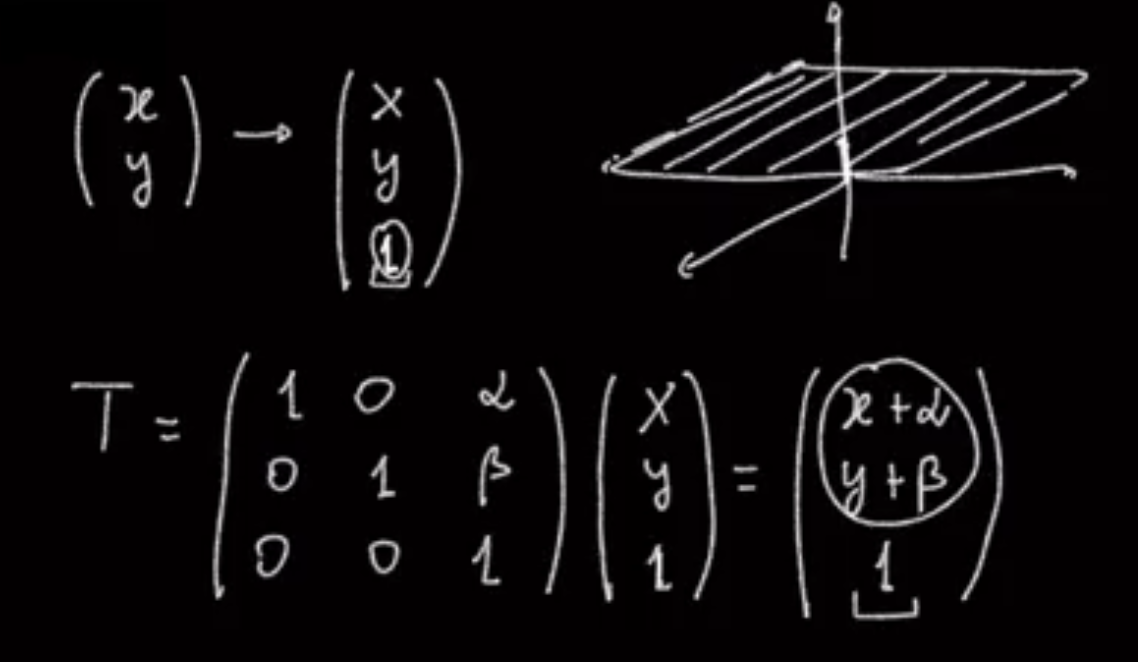 (x y) → (x y 1)
T = (1 0 α 0 1 β 0 0 1) (x y 1) = (x+α y+β 1)